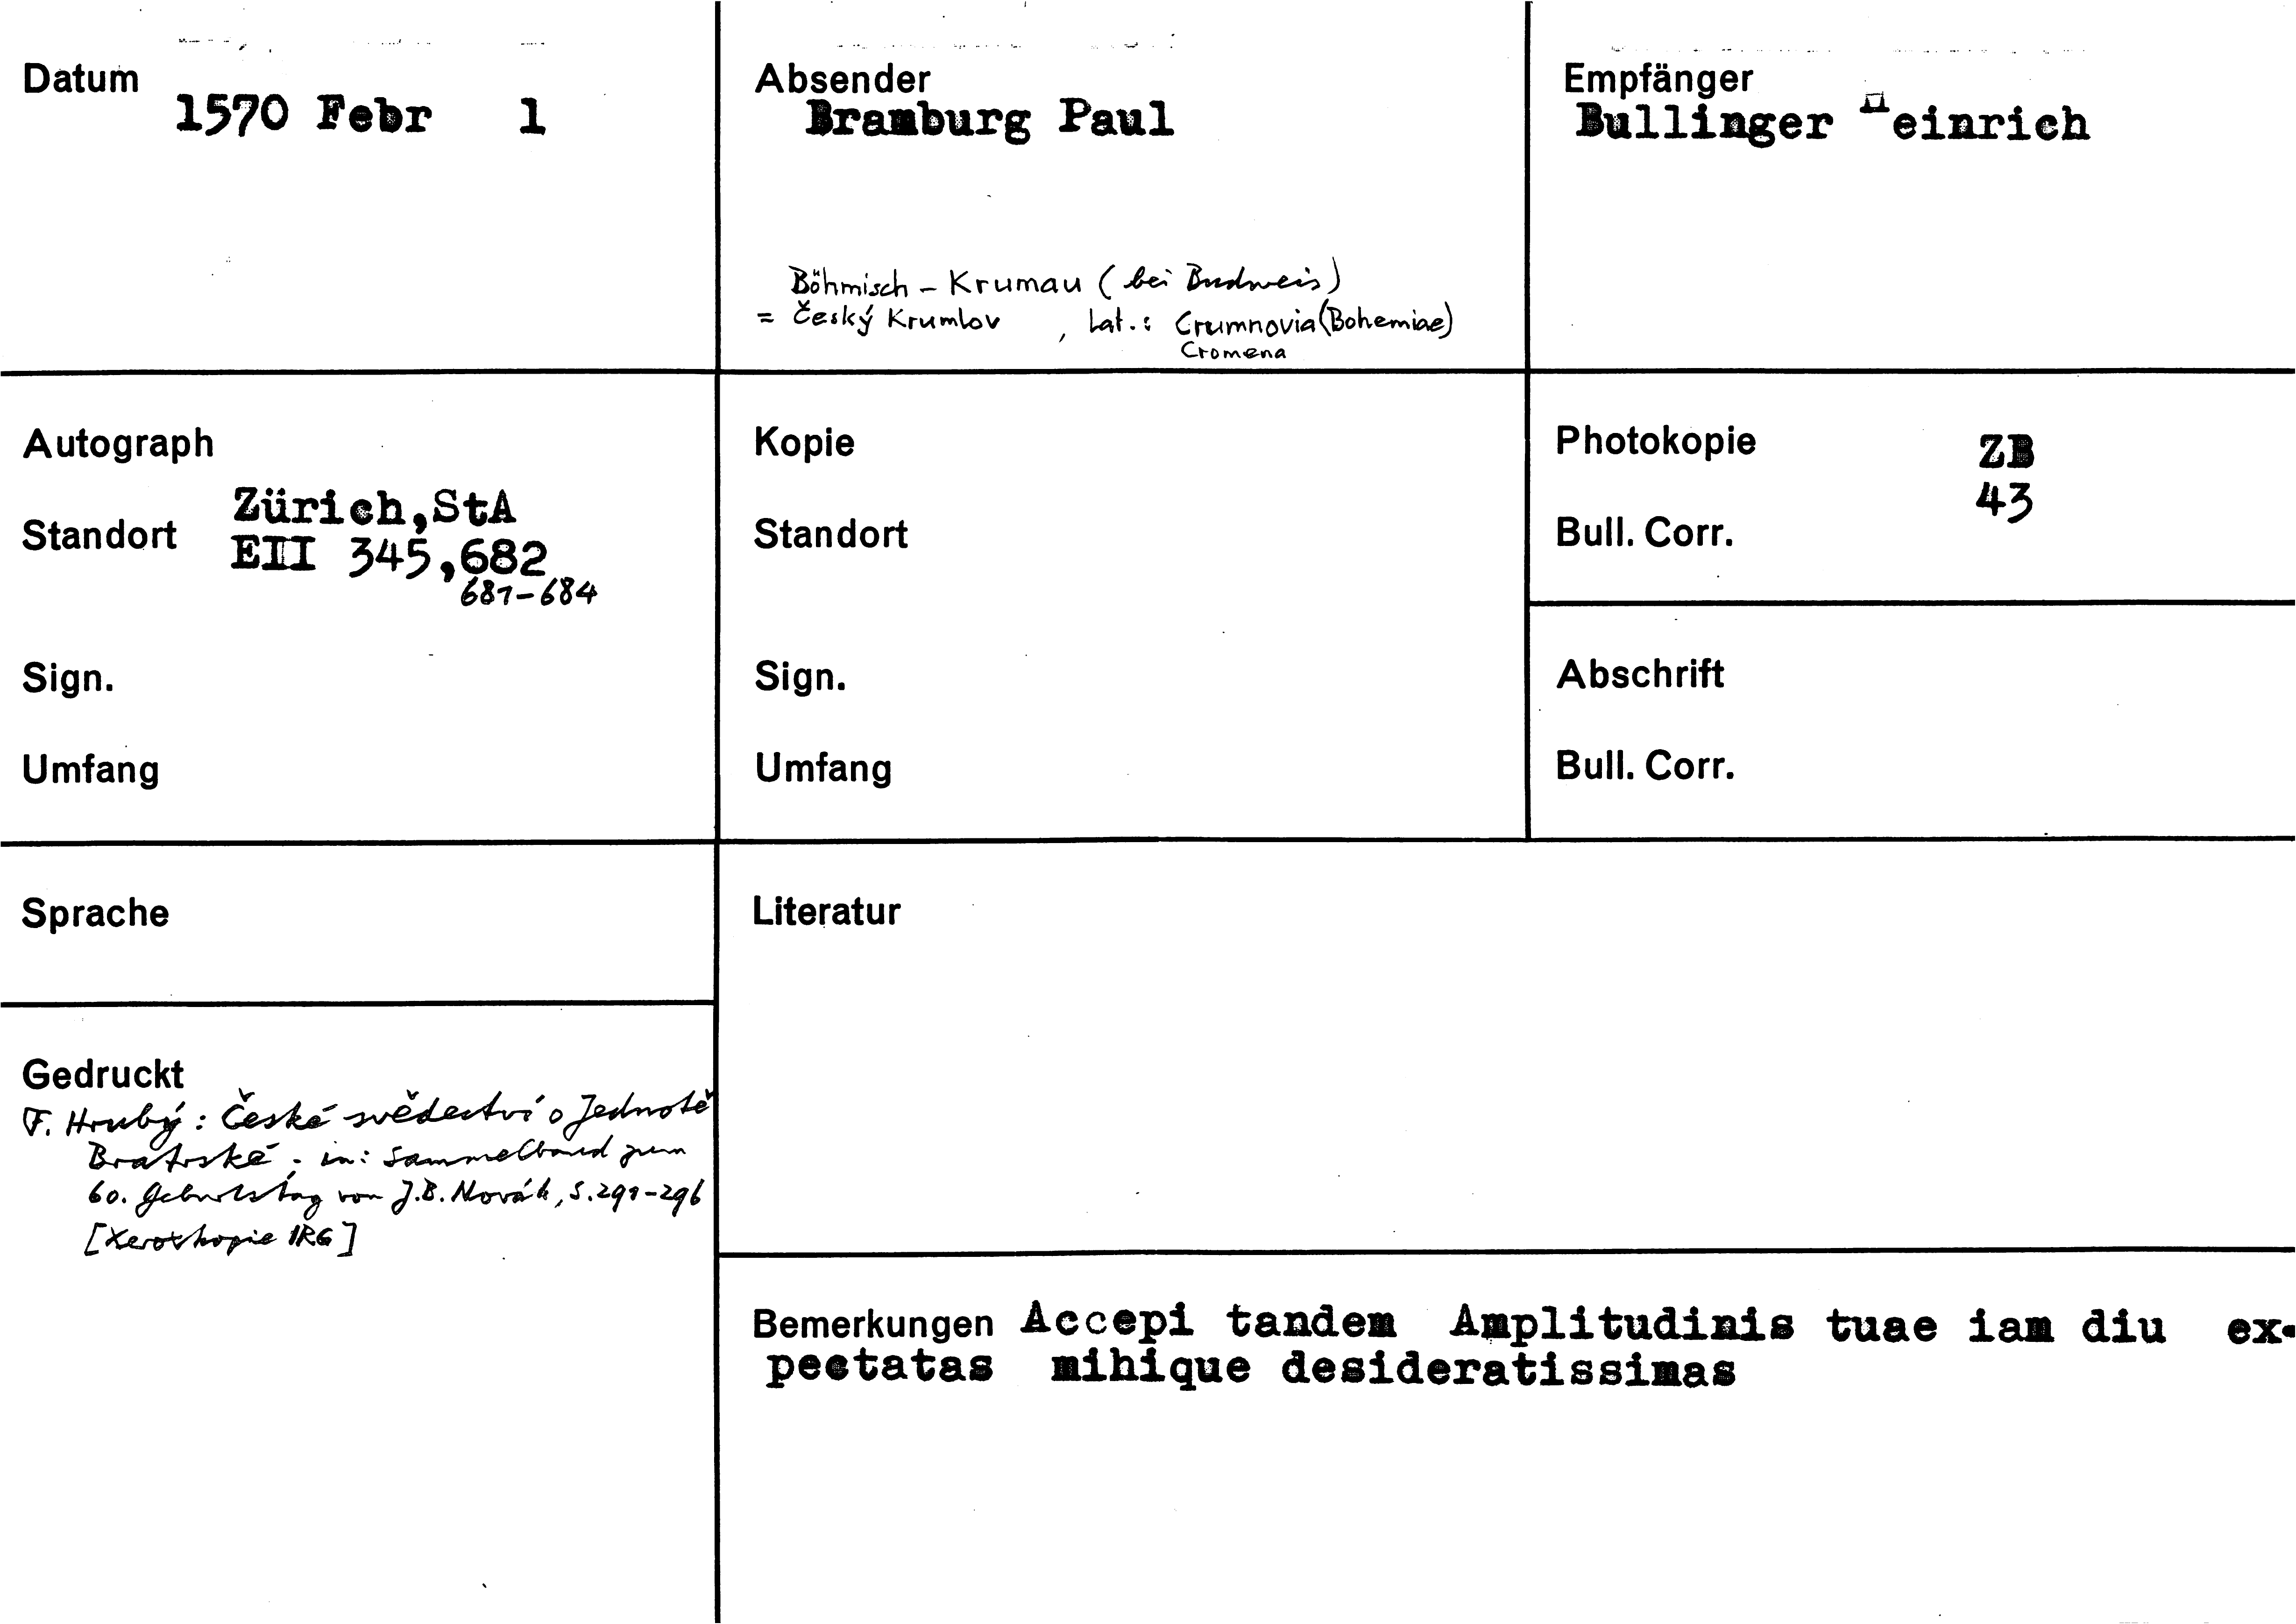 Datum
1570 Febr 1
Absender
Bramburg Paul
Böhmisch - Krumau (bei Budweis)
= Český Krumlov , Lat.: Crumnovia (Bohemiae)
Cromena
Empfänger
Bullinger Heinrich
Autograph
Standort Zürich,StA
EII 345,682
681-684
Sign.
Umfang
Kopie
Standort
Sign.
Umfang
Photokopie ZB
43
Bull. Corr.
Abschrift
Bull. Corr.
Sprache
Gedruckt
F. Hrubý: České svědectví o Jednotě
Bratrské. in: Sammelband zum
60. Geburtstag von J.B. Novák, S. 291-296
[Xerokopie IRG]
Literatur
Bemerkungen Accepi tandem Amplitudinis tuae iam diu ex-
pectatas mihique desideratissimas